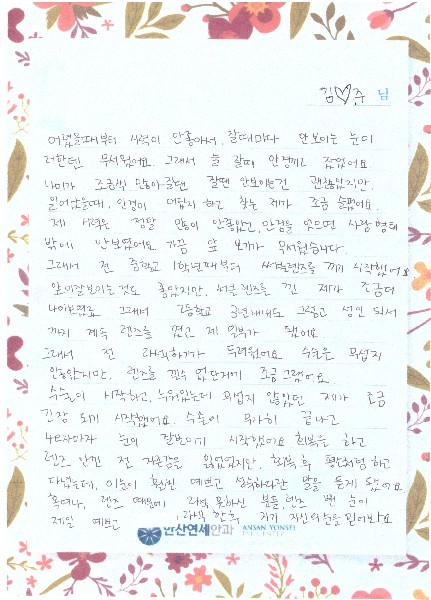 김♡주 님
어렸을때부터 시력이 안좋아서, 잘때마다 안보이는 눈이
무서웠어요. 그래서 늘 잘때 안경끼고 잤었어요
나이가 조금씩 잘땐 안보이는건 괜찮았지만,
일어났을때, 안경이 어딨지 하고 찾는 제가 조금 슬펐어요.
제 시력은 정말 많이 안좋았고, 안경을 벗으면 사람 형태
밖에 안보였어요 가끔 앞 보기가 무서웠습니다.
그래서 전 중학교 1학년때부터 써클렌즈를 끼기 시작했어요
앞이잘보이는것도 좋았지만, 써클렌즈를 낀 제가 조금더
나아보였죠 그래서 고등학교 3년내내도 그렇고 성인 되서
까지 계속 렌즈를 꼈고 제 일부가 됐어요
그래서 전 라식하기가 두려웠어요 수술은 무섭지
안았지만, 렌즈를 낄수 없단거에 조금 그랬어요
수술이 시작하고, 누워있는데 무섭지 않았던 제가 조금
긴장 되기 시작했어요. 수술이 무사히 끝나고
눈이 잘보이기 시작했어요 회복을 하고
렌즈 안낀 전 자존감은 회복 후 평소처럼 하고
다녔는데, 이눈이 훨씬 예쁘고 성숙하다란 말을 듣게 됐어요
혹여나, 렌즈 때문에 라식 못하신 분들, 렌즈 뺀 눈이
제일 예쁘고 라식 한 후 자기 자신의 눈을 믿어봐요
안산연세안과 ANSAN YONSEI EYE CENTER